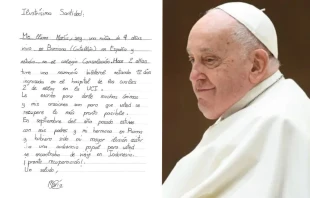 Ilustrísima Santidad:
Me llamo María, soy una niña de 9 años
vivo en Barcelona (Cataluña) en España y
estudio en el colegio Hace 5 años,
tuve una neumonía bilateral estando 12 días
ingresada en el hospital de los cuales
2 estuve en la UCI.
Le escribo para darle muchos ánimos
y mis oraciones son para que usted se
recupere lo más pronto posible.
En septiembre del año pasado estuve
con mis padres y mi hermano en Roma
y hubiera sido mi mayor ilusión asistir
a una audiencia papal pero usted
se encontraba de viaje en Indonesia.
¡Pronta recuperación!
Un saludo,
María